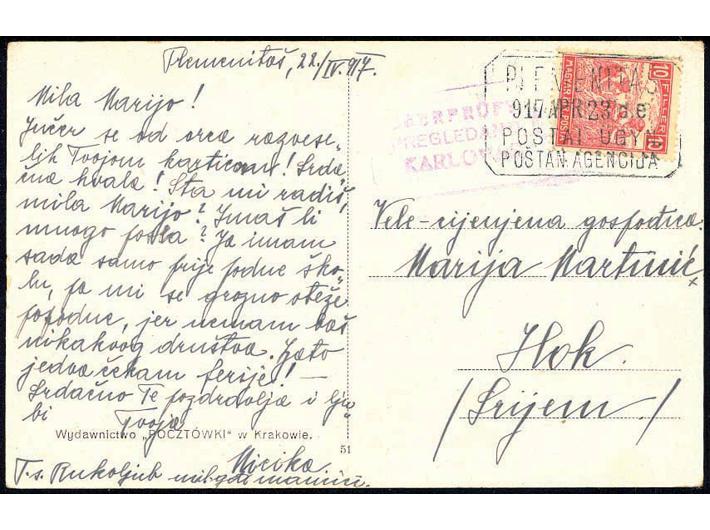 Plemenitaš, 22./IV. 917.
Mila Marijo!
Jučer se od srca razvese-
lih Tvojom karticom! Srda-
čna hvala! Šta mi radiš,
mila Marijo? Imaš li
mnogo posla? Ja imam
sada samo prije podne ško-
lu, pa mi se grozno oteže
popodne, jer nemam baš
nikakvog društva. Zato
jedva čekam ferije! —
Srdačno Te pozdravlja i lju-
bi Tvoja
Micika.
Wydawnictwo „POCZTÓWKI" w Krakowie.
51
T.s. Rukoljub mil. gdi mamici.
ÜBERPRÜFT
PREGLEDANO
KARLOV
PLEMENITAS
917 APR 23 d.e
POSTAI ÜGYN
POŠTAN. AGENCIJA
10 FILLÉR 10
MAGYAR KIR. POSTA
Vele-cijenjena gospođica
Marija Martinić
Ilok.
(Srijem.)